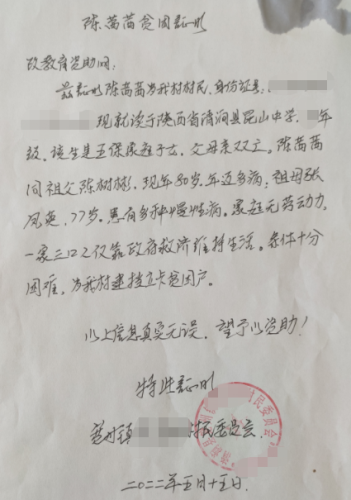 陈茜茜贫困证明
致教育资助网:
兹证明陈茜茜为我村村民,身份证号:
现就读于陕西省清涧县昆山中学,年
级。该生是五保家庭子女,父母亲双亡。陈茜茜
同祖父陈树彬,现年80岁,年迈多病,祖母张
凤英,77岁。患有多种慢性病。家庭无劳动力,
一家三口仅靠政府救济维持生活。条件十分
困难,为我村建档立卡贫困户。
以上信息真实无误,望予以资助!
特此证明
镇 村民委员会
民委员会
二〇二二年五月十五日